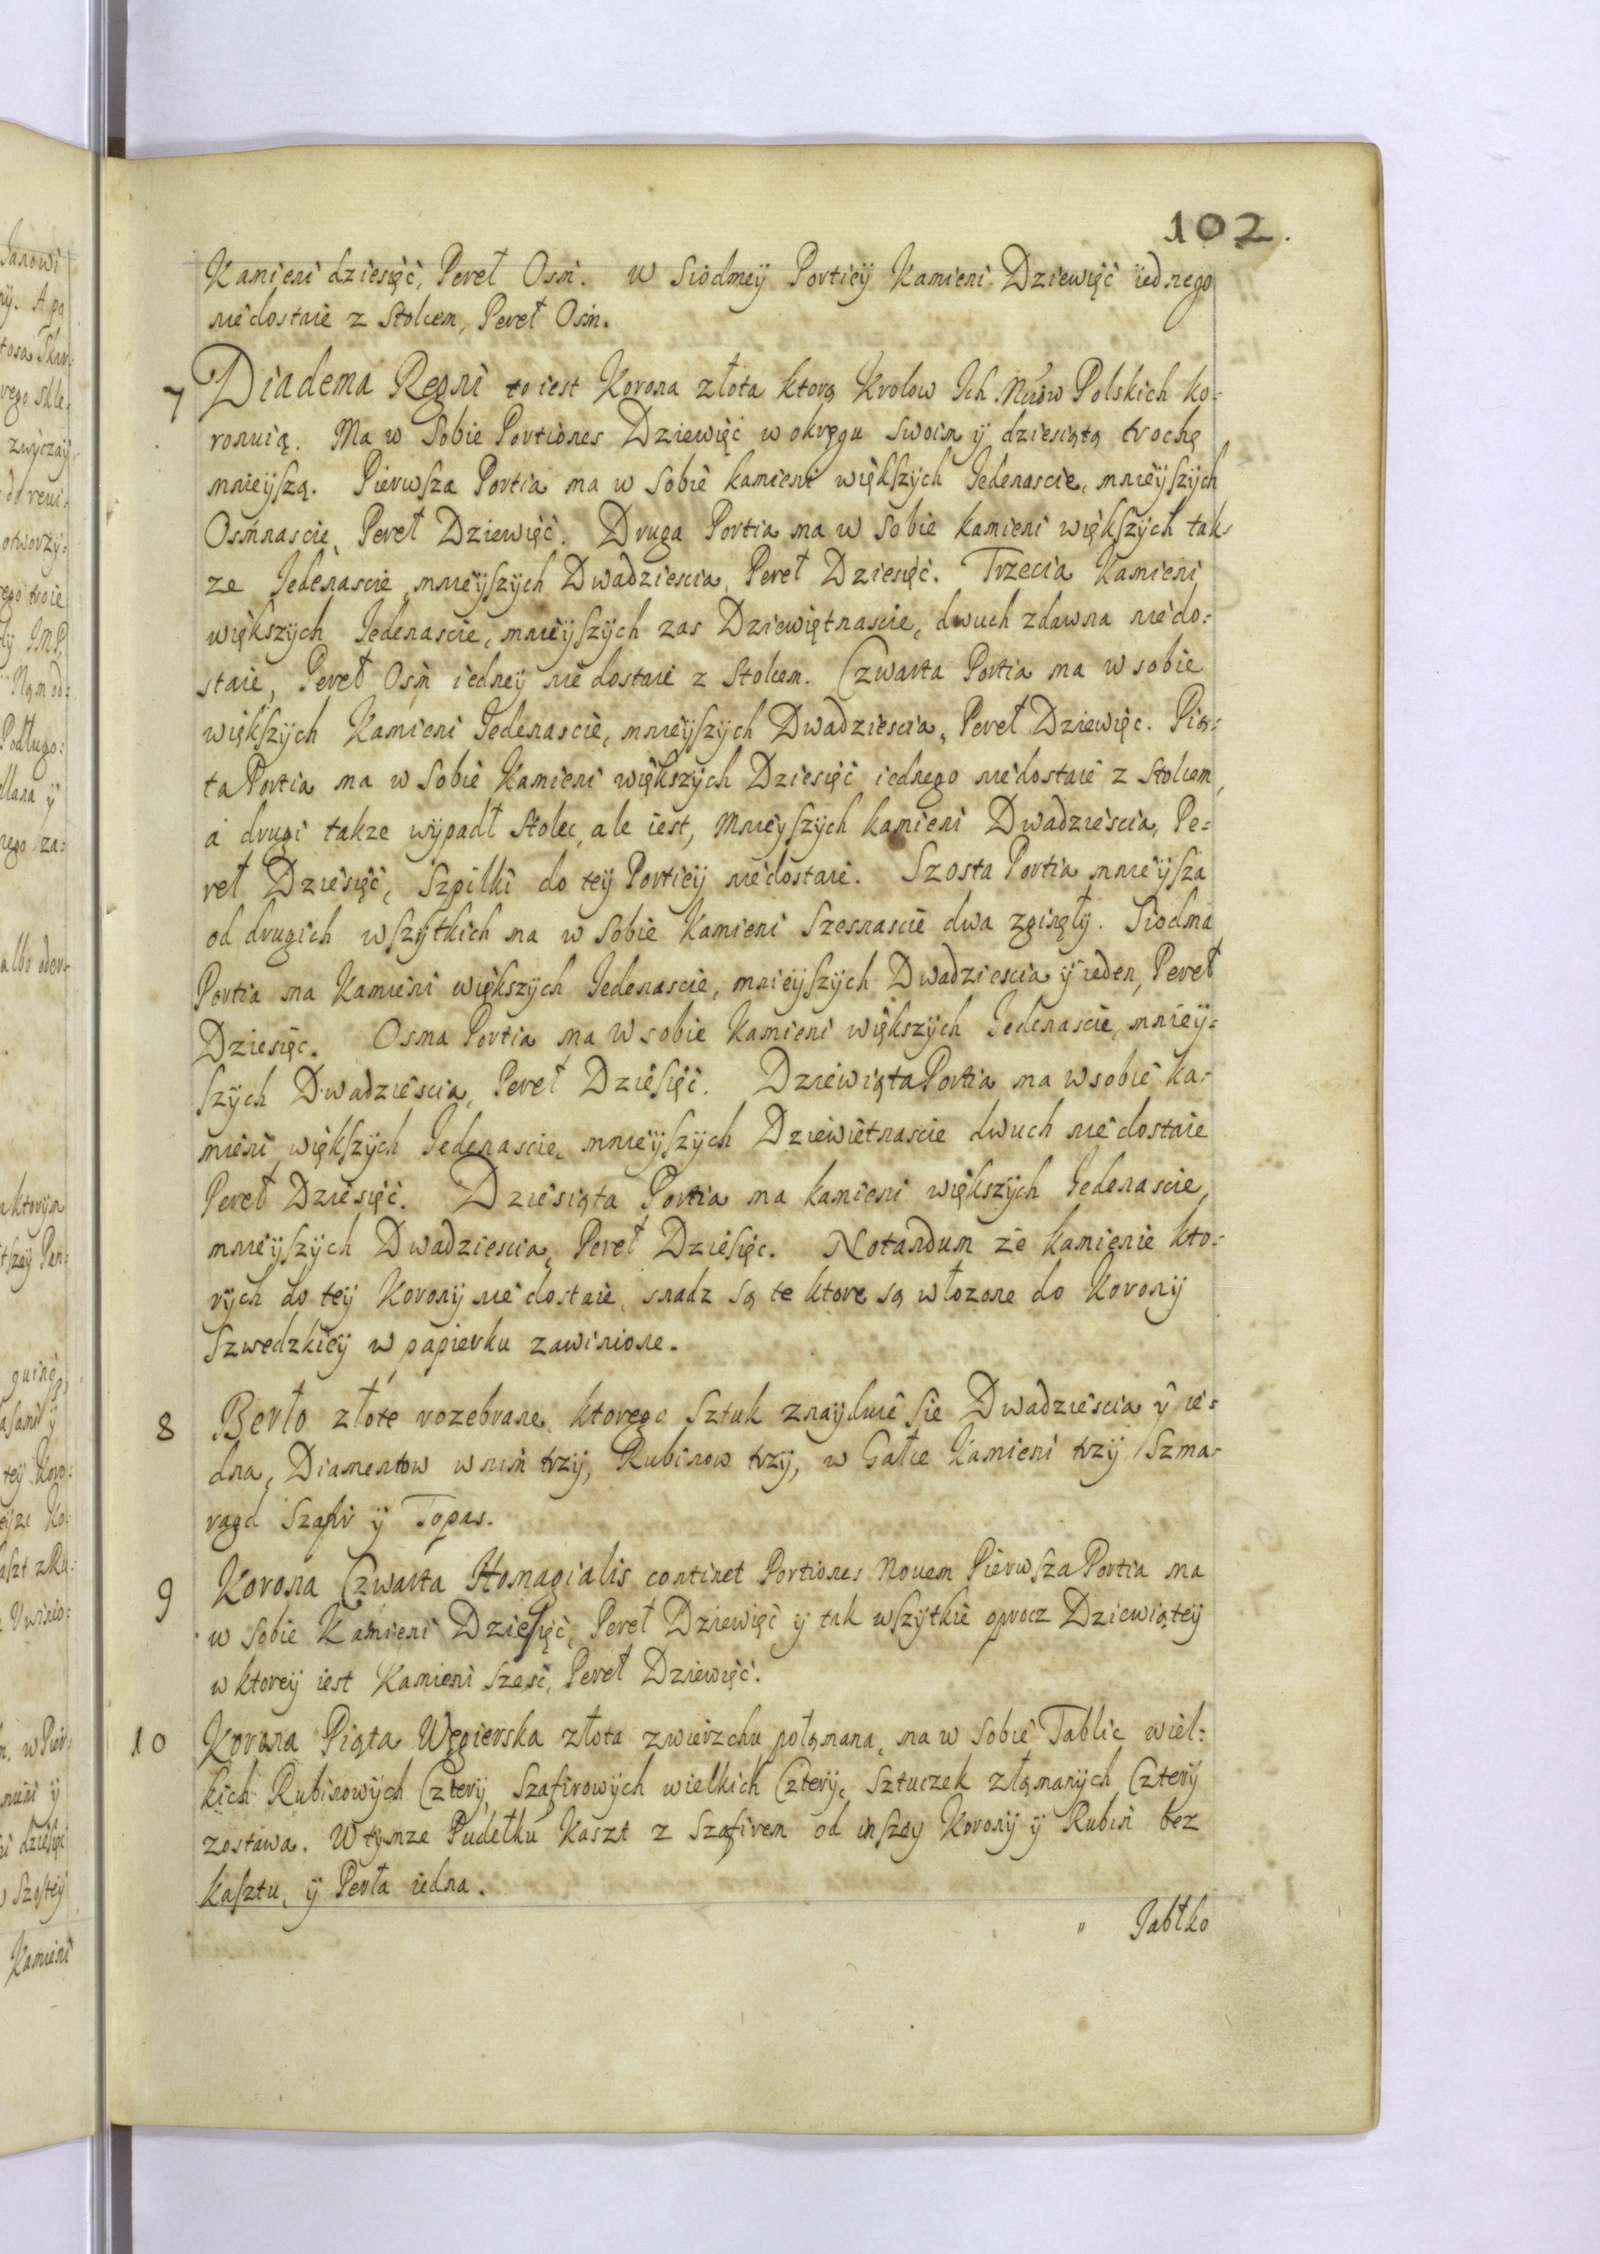 102.
Kamieni dziesięć, Pereł Osm. w Siodmey Porticÿ Kamieni Dziewięć iednego
niedostaie z Stolcem, Pereł Osm.
7 Diadema Regni to iest Korona złota ktorą Krolow Ich Mćiow Polskich ko-
ronuią. Ma w Sobie Portiones Dziewięć w okręgu swoim ÿ dziesiątą trochę
mnieÿszą. Pierwsza Portia ma w Sobie kamieni większÿch Iedenascie, mnieÿszÿch
Osmnascie, Pereł Dziewięć. Druga Portia ma w Sobie kamieni większÿch tak-
ze Iedenascie, mnieÿszÿch Dwadziescia, Pereł Dziesięć. Trzecia Kamieni
większÿch Iedenascie, mnieÿszÿch zas Dziewiętnascie, dwuch zdawna niedo-
staie, Pereł Osm iedneÿ niedostaie z Stolcem. Czwarta Portia ma w sobie
większÿch Kamieni Iedenascie, mnieÿszÿch Dwadziescia, Pereł Dziewięc. Pią-
ta Portia ma w Sobie Kamieni większÿch Dziesięć iednego niedostaie z Stolcem,
a drugi takze wÿpadł Stolec, ale iest, mnieÿszÿch kamieni Dwadziescia, Pe-
reł Dziesięć, Szpilki do teÿ Porticÿ niedostaie. Szosta Portia mnieÿsza
od drugich wszÿtkich ma w Sobie Kamieni Szesnascie dwa zginęłÿ. Siodma
Portia ma Kamieni większÿch Iedenascie, mnieÿszÿch Dwadziescia ÿ ieden, Pereł
Dziesięc. Osma Portia ma w sobie Kamieni większÿch Iedenascie, mnieÿ-
szÿch Dwadziescia, Pereł Dziesięć. Dziewiąta Portia ma w sobie ka-
mieni większÿch Iedenascie, mnieÿszÿch Dziewietnascie dwuch niedostaie
Pereł Dziesięć. Dziesiąta Portia ma kamieni większÿch Iedenascie,
mnieÿszÿch Dwadziescia, Pereł Dziesięc. Notandum że kamienie kto-
rÿch do teÿ Koronÿ niedostaie, snadz są te ktore są włozone do Koronÿ
Szwedzkieÿ w papierku zawinione.
8 Berło złote rozebrane, ktorego Sztuk znaÿduie sie Dwadziescia ÿ ie-
dna, Diamentow w nim trzÿ, Rubinow trzÿ, w Gałce Kamieni trzÿ Szma-
ragd Szafir ÿ Topas.
9 Korona Czwarta Homagialis continet Portiones Novem Pierwsza Portia ma
w Sobie Kamieni Dziesięć, Pereł Dziewięć ÿ tak wszÿtkie oprocz Dziewiąteÿ
w ktoreÿ iest Kamieni Szesć, Pereł Dziewięć.
10 Korona Piąta Węgierska złota zwierzchu połąmana, ma w Sobie Tablic wiel-
kich Rubinowÿch Czterÿ, Szafirowÿch wielkich Czterÿ, Sztuczek złąmanÿch Czterÿ
zostawa. W tÿmze Pudełku Kaszt z Szafirem od inszeÿ Koronÿ ÿ Rubin bez
kasztu, ÿ Perła iedna.
" Jabłko